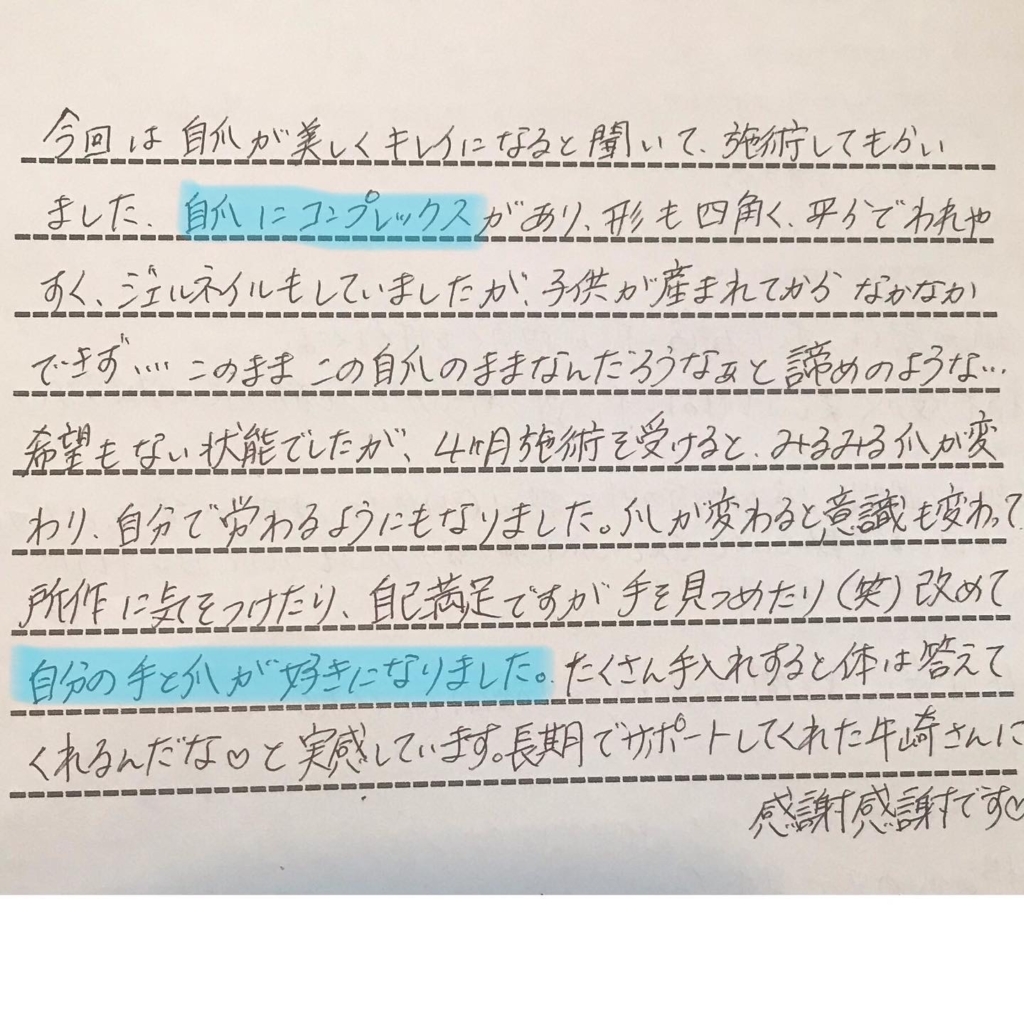 今回は自爪が美しくキレイになると聞いて、施術してもらい
ました、自爪にコンプレックスがあり、形も四角く、平らでわれや
すく、ジェルネイルもしていましたが、子供が産まれてから なかなか
できず…. このまま この自爪のままなんだろうなぁと諦めのような…
希望もない状能でしたが、4ヶ月施術を受けると、みるみる爪が変
わり、自分で労わるようにもなりました。爪が変わると意識も変わって
所作に気をつけたり、自己満足ですが手を見つめたり(笑)改めて
自分の手と爪が好きになりました。たくさん手入れすると体は答えて
くれるんだな♡と実感しています。長期でサポートしてくれた牛崎さんに
感謝感謝です♡